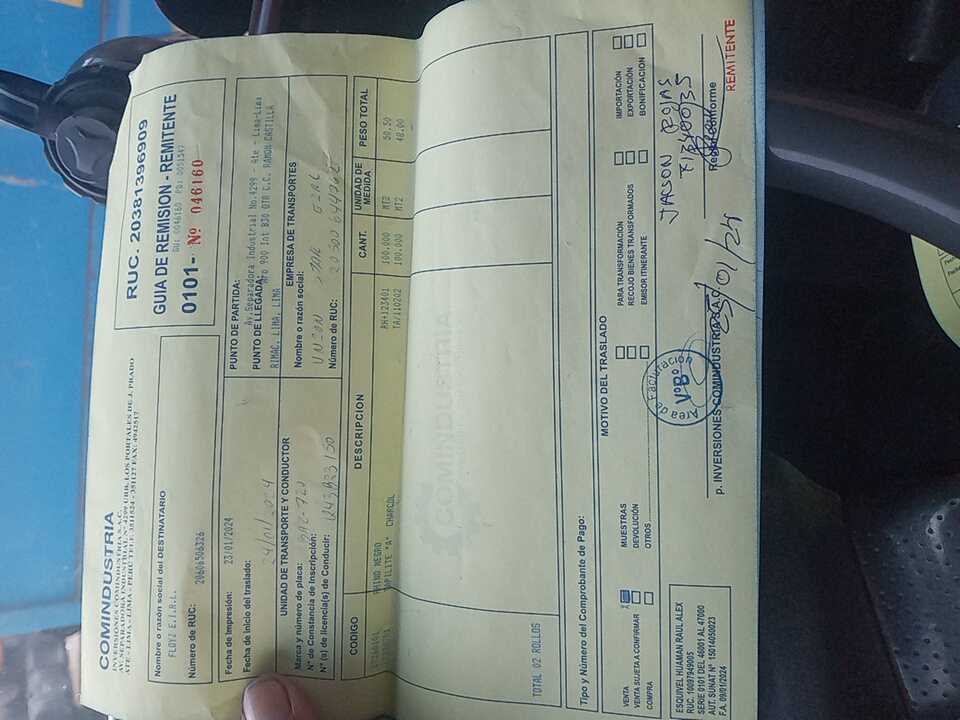 COMINDUSTRIA
INVERSIONES COMINDUSTRIA S.A.C.
AV. SEPARADORA INDUSTRIAL Nº 4299 URB. LOS PORTALES DE J. PRADO
ATE - LIMA - PERU TELF. 3511524 - 351127 FAX: 4942517
RUC. 20381396909
GUIA DE REMISION - REMITENTE
DN: 0046160 PD: 0051547
0101- Nº 046160
Nombre o razón social del DESTINATARIO
FLOYI E.I.R.L.
Número de RUC: 20606506326
Fecha de Impresión: 23/01/2024
Fecha de Inicio del traslado: 24/01/2024
PUNTO DE PARTIDA:
Av.Separadora Industrial No.4299 - Ate - Lima-Lima
PUNTO DE LLEGADA:
Nro 900 Int B30 OTR C.C. RAMON CASTILLA
RIMAC, LIMA, LIMA
UNIDAD DE TRANSPORTE Y CONDUCTOR
Marca y número de placa:
Nº de Constancia de Inscripción:
Nº (s) de licencia(s) de Conducir:
EMPRESA DE TRANSPORTES
Nombre o razón social:
UNION STAR
Número de RUC:
CODIGO DESCRIPCION CANT. UNIDAD DE MEDIDA PESO TOTAL
NEGRO RH+123401 100.000 MT2 50.50
"A" CHARCOL TA/110202 100.000 MT2 48.00
COMINDUSTRIA
TOTAL 02 ROLLOS
Tipo y Número del Comprobante de Pago:
MOTIVO DEL TRASLADO
VENTA
VENTA SUJETA A CONFIRMAR
COMPRA
MUESTRAS
DEVOLUCIÓN
OTROS
PARA TRANSFORMACIÓN
RECOJO BIENES TRANSFORMADOS
EMISOR ITINERANTE
IMPORTACIÓN
EXPORTACIÓN
BONIFICACION
ESQUIVEL HUAMAN RAUL ALEX
RUC. 10097949005
SERIE 0101 DEL 46001 AL 47000
AUT. SUNAT Nº 15014050023
F.A. 09/01/2024
Area de Facturación
VºBº
p. INVERSIONES COMINDUSTRIA S.A.C.
/01/24
JACSON ROJAS
Recibí conforme
REMITENTE